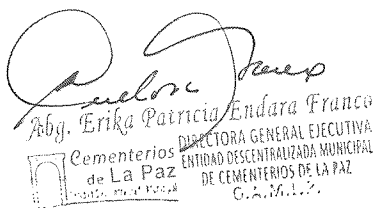 Abg. Erika Patricia Endara Franco
DIRECTORA GENERAL EJECUTIVA
ENTIDAD DESCENTRALIZADA MUNICIPAL
DE CEMENTERIOS DE LA PAZ
G.A.M.L.P.
Cementerios
de La Paz